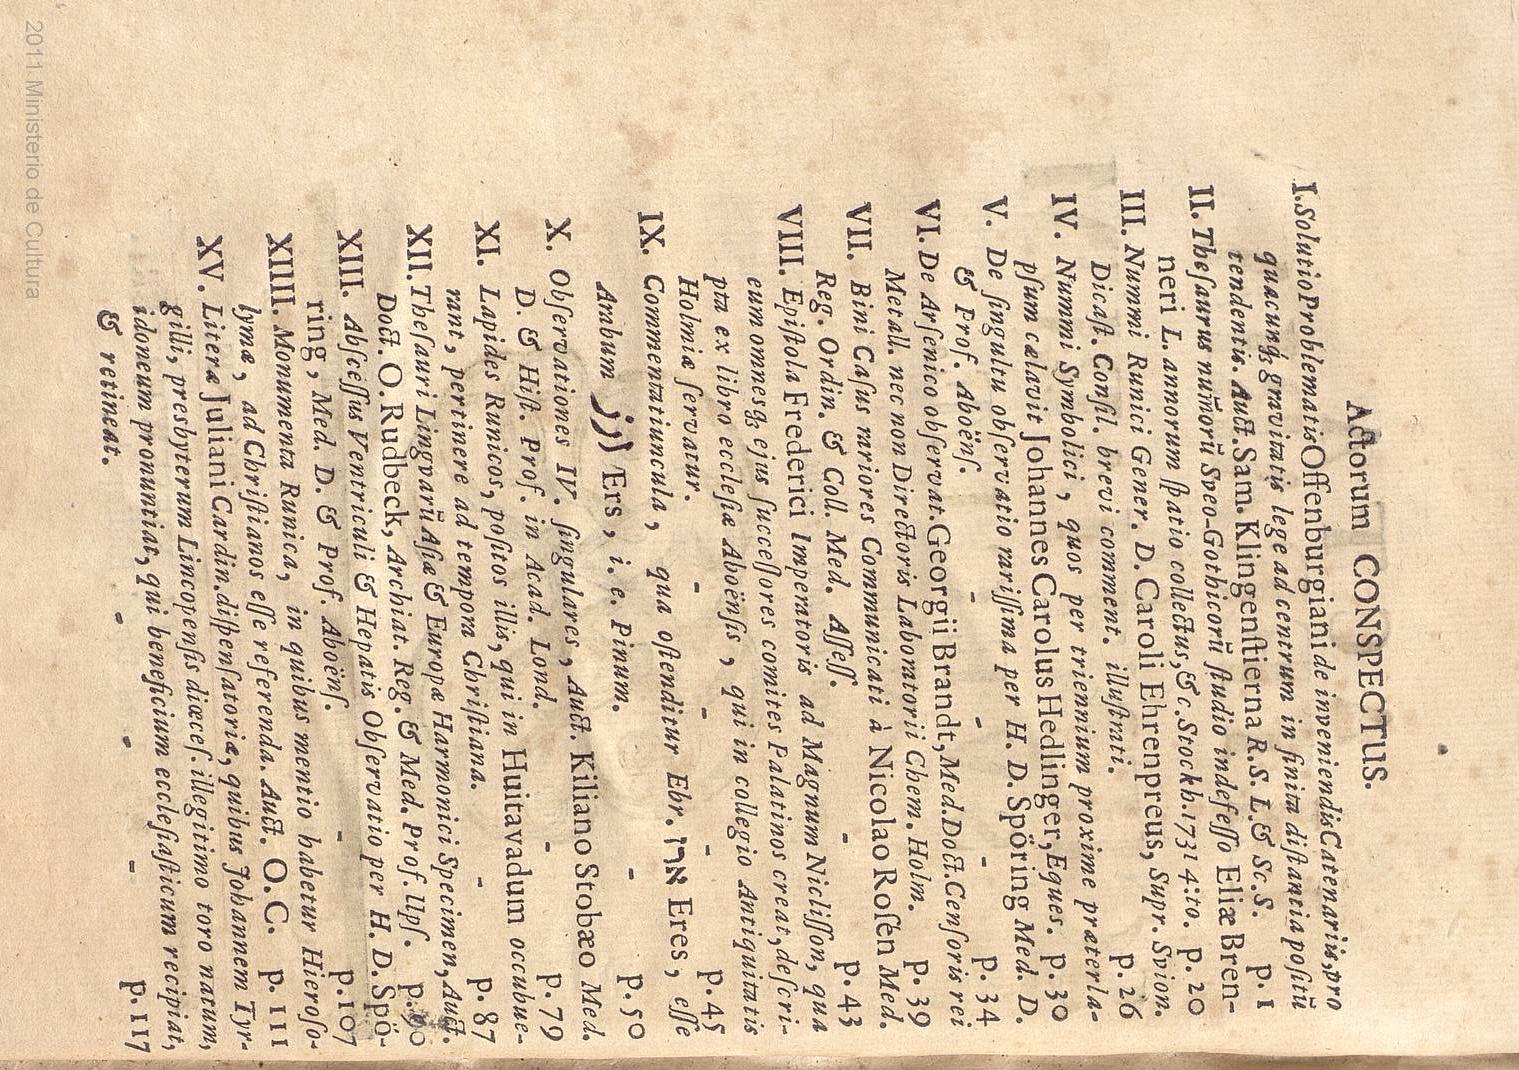 Actorum CONSPECTUS.
I. Solutio Problematis Offenburgiani de inveniendis Catenariis, pro
quacunq; gravitatis lege ad centrum in finita distantia positũ
tendentis. Auct. Sam. Klingenstierna R. S. L. & Sc. S. p. 1
II. Thesaurus num̃orũ Sveo-Gothicorũ studio indefesso Eliæ Bren-
neri L. annorum spatio collectus, &c. Stockh. 1731 4:to. p. 20
III. Nummi Runici Gener. D. Caroli Ehrenpreus, Supr. Svion.
Dicast. Consil. brevi comment. illustrati. p. 26
IV. Nummi Symbolici, quos per triennium proxime præterla-
psum cælavit Johannes Carolus Hedlinger, Eques. p. 30
V. De singultu observatio rarissima per H. D. Spöring Med. D.
& Prof. Aboëns. - - - p. 34
VI. De Arsenico observat. Georgii Brandt, Med. Doct. Censoris rei
Metall. nec non Directoris Laboratorii Chem. Holm. p. 39
VII. Bini Casus rariores Communicati à Nicolao Rosén Med.
Reg. Ordin. & Coll. Med. Assess. - p. 43
VIII. Epistola Frederici Imperatoris ad Magnum Niclisson, qua
eum omnesq; ejus successores comites Palatinos creat, descri-
pta ex libro ecclesiæ Aboënsis, qui in collegio Antiquitatis
Holmiæ servatur. - - - p. 45
IX. Commentatiuncula, qua ostenditur Ebr. ארז Eres, esse
Arabum ارز Ers, i. e. Pinum. - p. 50
X. Observationes IV. singulares, Auct. Kiliano Stobæo Med.
D. & Hist. Prof. in Acad. Lond. - p. 79
XI. Lapides Runicos, positos illis, qui in Huitavadum occubue-
rant, pertinere ad tempora Christiana. - p. 87
XII. Thesauri Lingvarũ Asiæ & Europæ Harmonici Specimen, Auct.
Doct. O. Rudbeck, Archiat. Reg. & Med. Prof. Ups. p.
XIII. Abscessus Ventriculi & Hepatis Observatio per H. D. Spö-
ring, Med. D. & Prof. Aboëns. - p. 107
XIIII. Monumenta Runica, in quibus mentio habetur Hieroso-
lymæ, ad Christianos esse referenda. Auct. O. C. p. 111
XV. Literæ Juliani Cardin. dispensatoriæ, quibus Johannem Tyr-
gilli, presbyterum Lincopensis diœces. illegitimo toro natum,
idoneum pronuntiat, qui beneficium ecclesiasticum recipiat,
& retineat. - - - p. 117
2011 Ministerio de Cultura